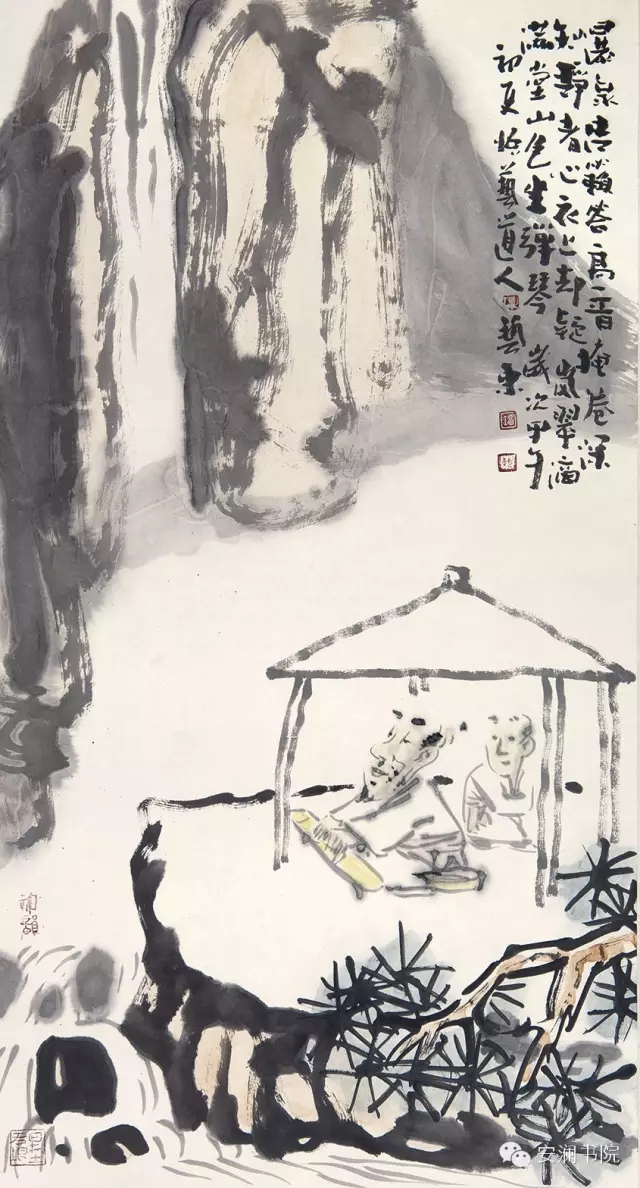 瀑泉籟答高音掩卷深
知靜者心衣上却疑嵐翠滴
滿堂山色坐彈琴 歲次甲午
初夏 藝道人 藝東
安澜书院